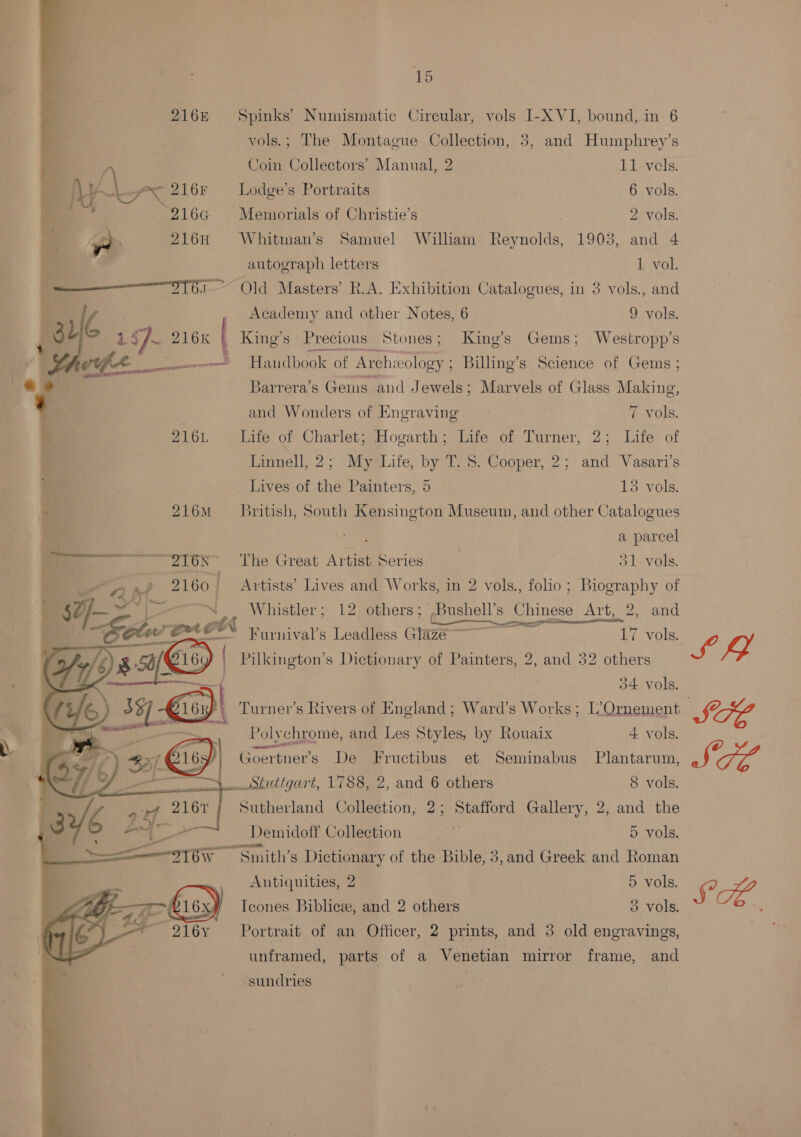 15
216E Spinks’ Numismatic Circular, vols I-XVI, bound, in 6
vols.; The Montague Collection, 3, and Humphrey’s
Coin Collectors’ Manual, 2 11 vols.
216F Lodge’s Portraits 6 vols.
216G Memorials of Christie’s 2 vols.
216H Whitman’s Samuel William Reynolds, 1903, and 4
autograph letters 1 vol.
216J Old Masters’ R.A. Exhibition Catalogues, in 3 vols., and
Academy and other Notes, 6 9 vols.
216K King’s Precious Stones; King’s Gems; Westropp’s
Handbook of Archæology; Billing’s Science of Gems;
Barrera’s Gems and Jewels; Marvels of Glass Making,
and Wonders of Engraving 7 vols.
216L Life of Charlet; Hogarth; Life of Turner, 2; Life of
Linnell, 2; My Life, by T. S. Cooper, 2; and Vasari’s
Lives of the Painters, 5 13 vols.
216M British, South Kensington Museum, and other Catalogues
a parcel
216N The Great Artist Series 31 vols.
216O Artists’ Lives and Works, in 2 vols., folio; Biography of
Whistler; 12 others; Bushell’s Chinese Art, 2, and
Furnival’s Leadless Glaze 17 vols.
Pilkington’s Dictionary of Painters, 2, and 32 others
34 vols.
216R Turner’s Rivers of England; Ward’s Works; L’Ornement
Polychrome, and Les Styles, by Rouaix 4 vols.
216S Goertner’s De Fructibus et Seminabus Plantarum,
Stuttgart, 1788, 2, and 6 others 8 vols.
216T Sutherland Collection, 2; Stafford Gallery, 2, and the
Demidoff Collection 5 vols.
216W Smith’s Dictionary of the Bible, 3, and Greek and Roman
Antiquities, 2 5 vols.
216X Icones Biblicæ, and 2 others 3 vols.
216Y Portrait of an Officer, 2 prints, and 3 old engravings,
unframed, parts of a Venetian mirror frame, and
sundries